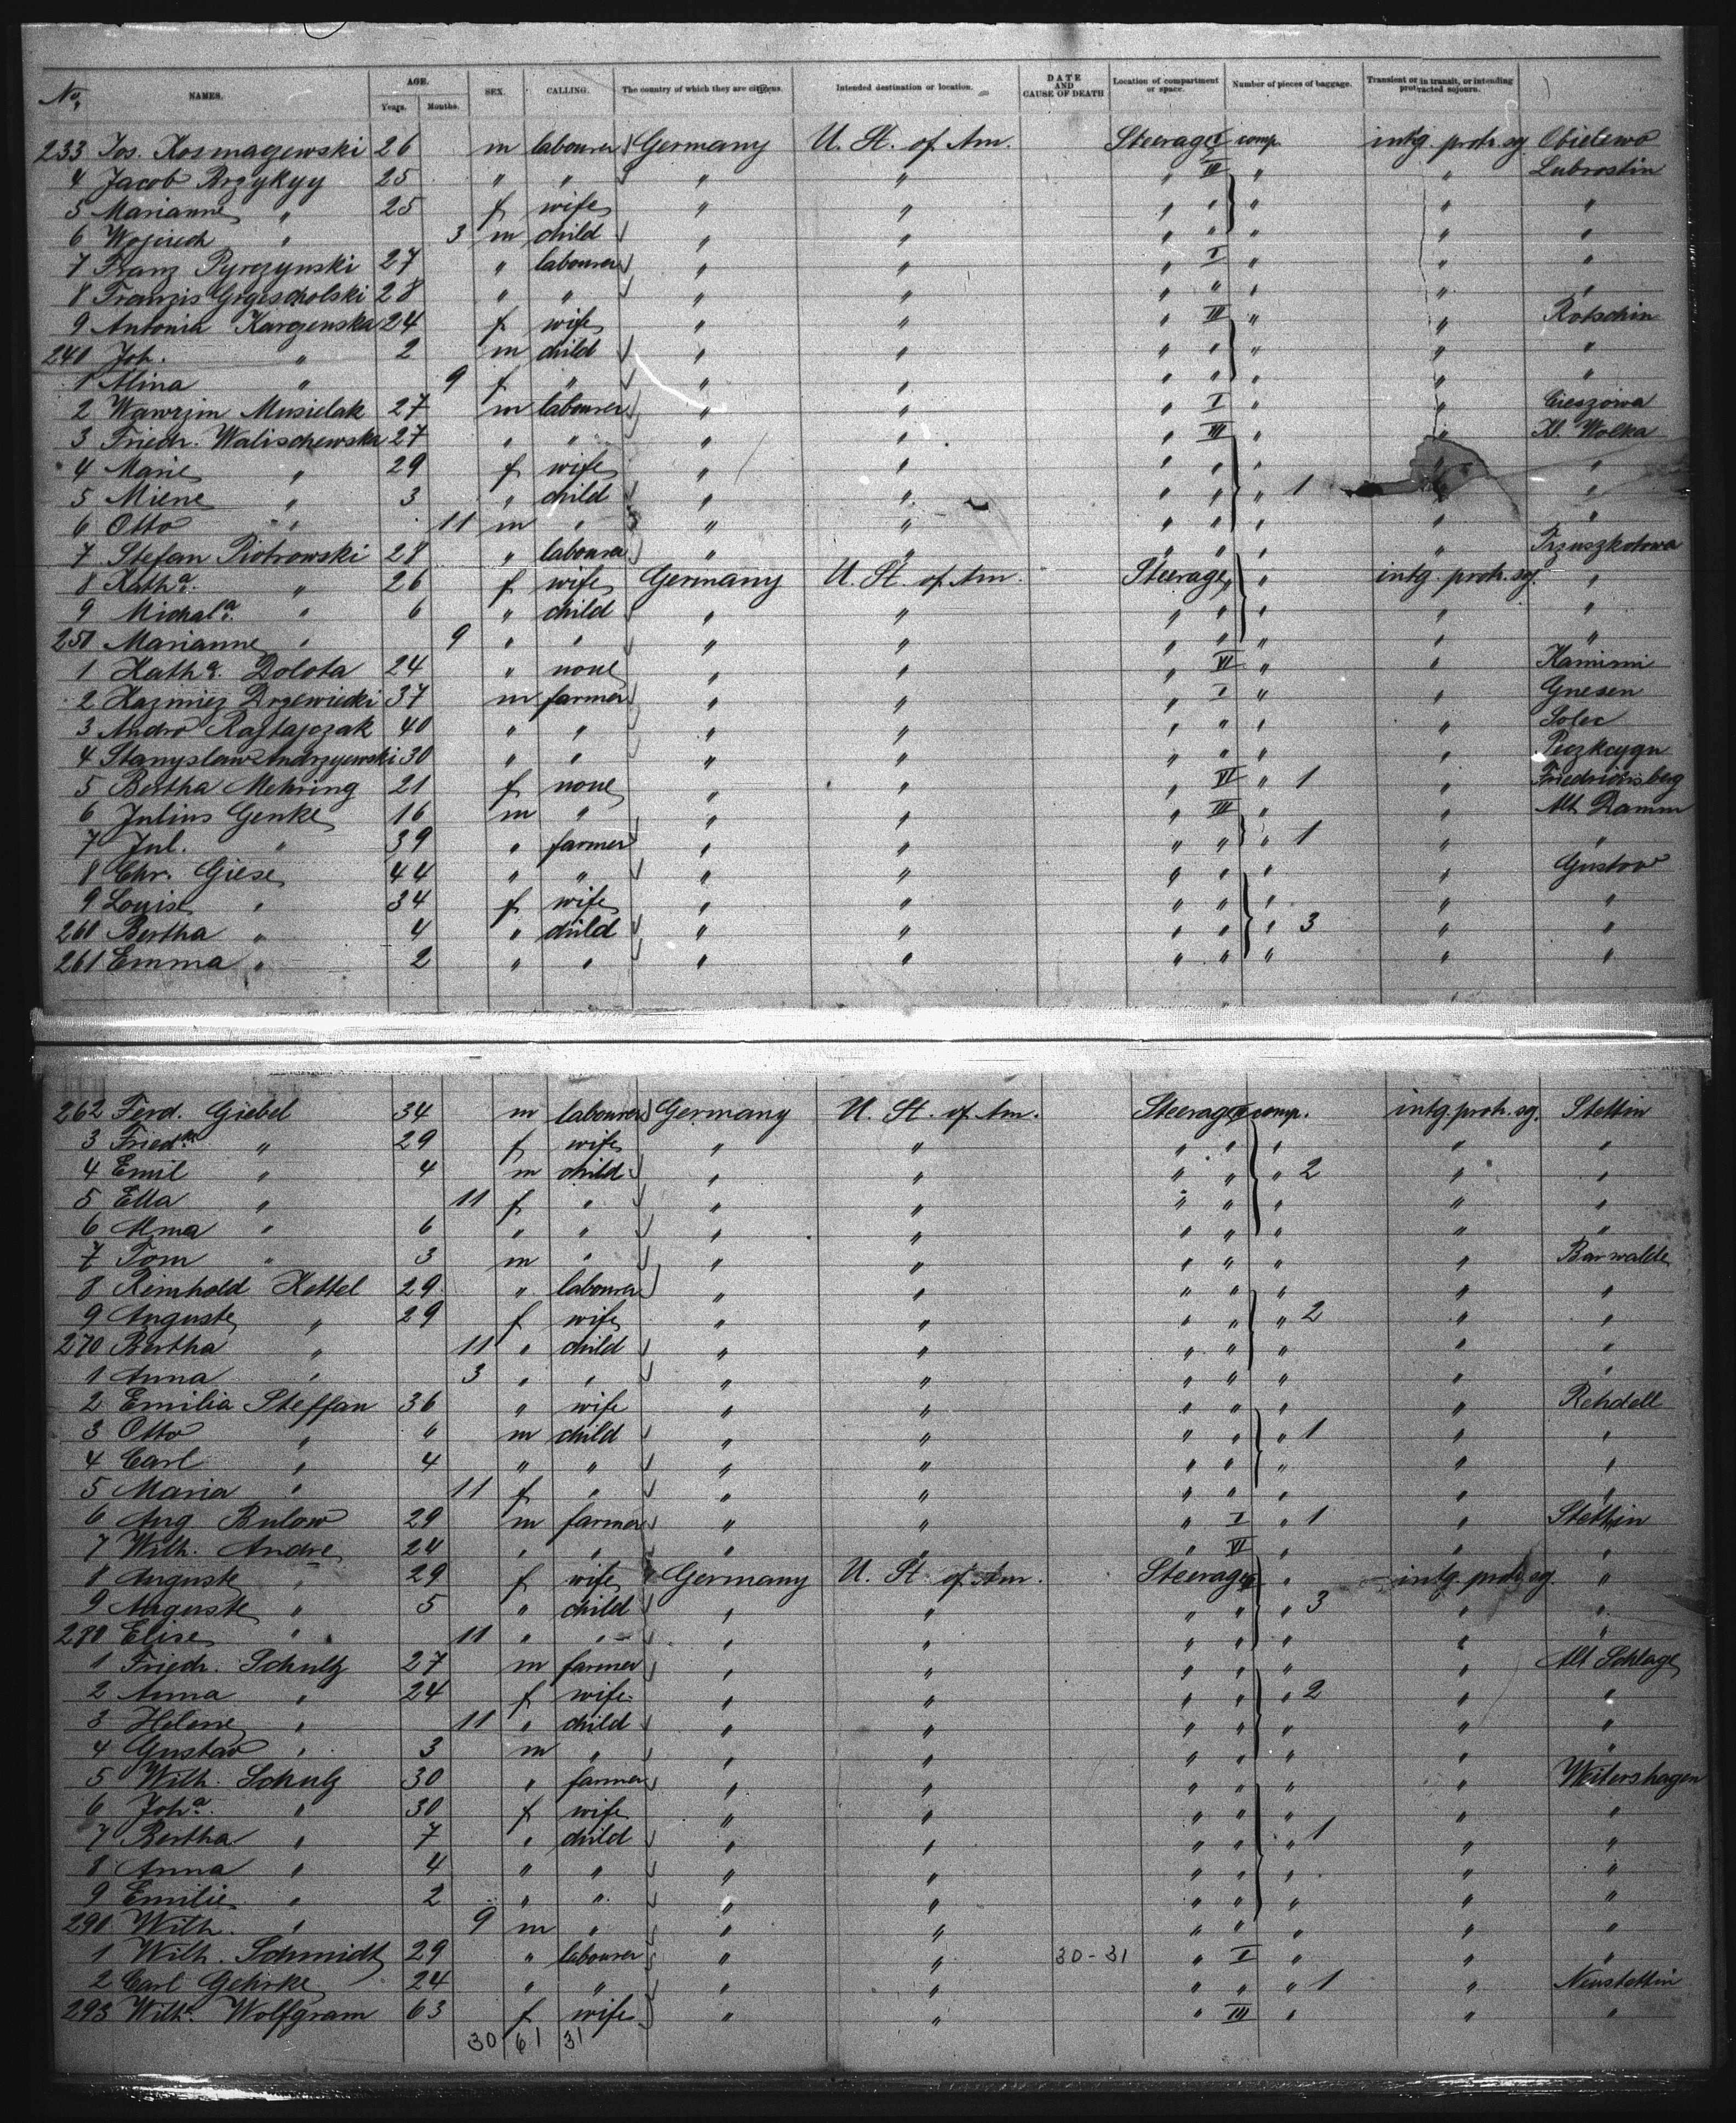 No. NAMES. AGE. Years. Months. SEX. CALLING. The country of which they are citizens. Intended destination or location. DATE AND CAUSE OF DEATH Location of compartment or space. Number of pieces of baggage. Transient or in transit, or intending protracted sojourn.
233 Jos. Kosmagewski 26 m labourer Germany U. St. of Am. Steerage I comp. intg. protr. sg. Obielewo
4 Jacob Przykyy 25 " " " " " III " " Lubrostin
5 Marianne " 25 f wife " " " " " " "
6 Wojciech " 3 m child " " " " " " "
7 Franz Pyrczynski 27 " labourer " " " I " " "
8 Franzis Grgescholski 28 " " " " " " " " "
9 Antonia Kargenska 24 f wife " " " III " " Rotschin
240 Joh. " 2 m child " " " " " " "
1 Alina " 9 f " " " " " " " "
2 Wawrzin Musielak 27 m labourer " " " I " " Cieszowa
3 Friedr. Walischewska 27 " " " " " III " " Kl. Wolka
4 Marie " 29 f wife " " " " " " "
5 Miene " 3 " child " " " " " 1 " "
6 Otto " 11 m " " " " " " " "
7 Stefan Piotrowski 28 " labourer " " " " " " Trzuszkotowa
8 Katha. " 26 f wife Germany U. St. of Am. Steerage " " intg. protr. sg. "
9 Michala. " 6 " child " " " " " " "
250 Marianne " 9 " " " " " " " " "
1 Katha. Dolota 24 " none " " " VI " " Kamimi
2 Kazmiez Drzewiecki 37 m farmer " " " I " " Gnesen
3 Andro Raftajczak 40 " " " " " " " " Solec
4 Stanyslaw Andrzyewski 30 " " " " " " " "
5 Bertha Mehring 21 f none " " " VI " 1 " Friedrichsberg
6 Julius Genke 16 m " " " " III " " Alt Damm
7 Jul. " 39 " farmer " " " " " 1 " "
8 Chr. Giese 44 " " " " " " " " Gustow
9 Louise " 34 f wife " " " " " " "
260 Bertha " 4 " child " " " " " 3 " "
261 Emma " 2 " " " " " " " " "
262 Ferd. Giebel 34 m labourer Germany U. St. of Am. Steerage comp. intg. protr. sg. Stettin
3 Friedke. " 29 f wife " " " " " " "
4 Emil " 4 m child " " " " " 2 " "
5 Ella " 11 f " " " " " " " "
6 Alma " 6 " " " " " " " " "
7 Tom " 3 m " " " " " " " Barwalde
8 Reinhold Kettel 29 " labourer " " " " " " "
9 Auguste " 29 f wife " " " " " 2 " "
270 Bertha " 11 " child " " " " " " "
1 Anna " 3 " " " " " " " " "
2 Emilia Steffan 36 " wife " " " " " " Rehdell
3 Otto " 6 m child " " " " " 1 " "
4 Carl " 4 " " " " " " " " "
5 Maria " 11 f " " " " " " " "
6 Aug Bulow 29 m farmer " " " I " 1 " Stettin
7 Wilh. Andre 24 " " " " " VI " "
8 Auguste " 29 f wife Germany U. St. of Am. Steerage " intg. protr. sg. "
9 Auguste " 5 " child " " " " " 3 " "
280 Elise " 11 " " " " " " " " "
1 Friedr. Schulz 27 m farmer " " " " " " Alt Schlage
2 Anna " 24 f wife " " " " " 2 " "
3 Helene " 11 " child " " " " " " "
4 Gustav " 3 m " " " " " " " "
5 Wilh. Schulz 30 " farmer " " " " " " Weitershagen
6 Joha. " 30 f wife " " " " " " "
7 Bertha " 7 " child " " " " " 1 " "
8 Anna " 4 " " " " " " " " "
9 Emilie " 2 " " " " " " " " "
290 Wilh. " 9 m " " " " " " " "
1 Wilh. Schmidt 29 " labourer " " 30-31 " I " " "
2 Carl Gehrke 24 " " " " " " " 1 " Neustettin
293 Wilhe. Wolfgram 63 f wife " " " III " " "
30 61 31